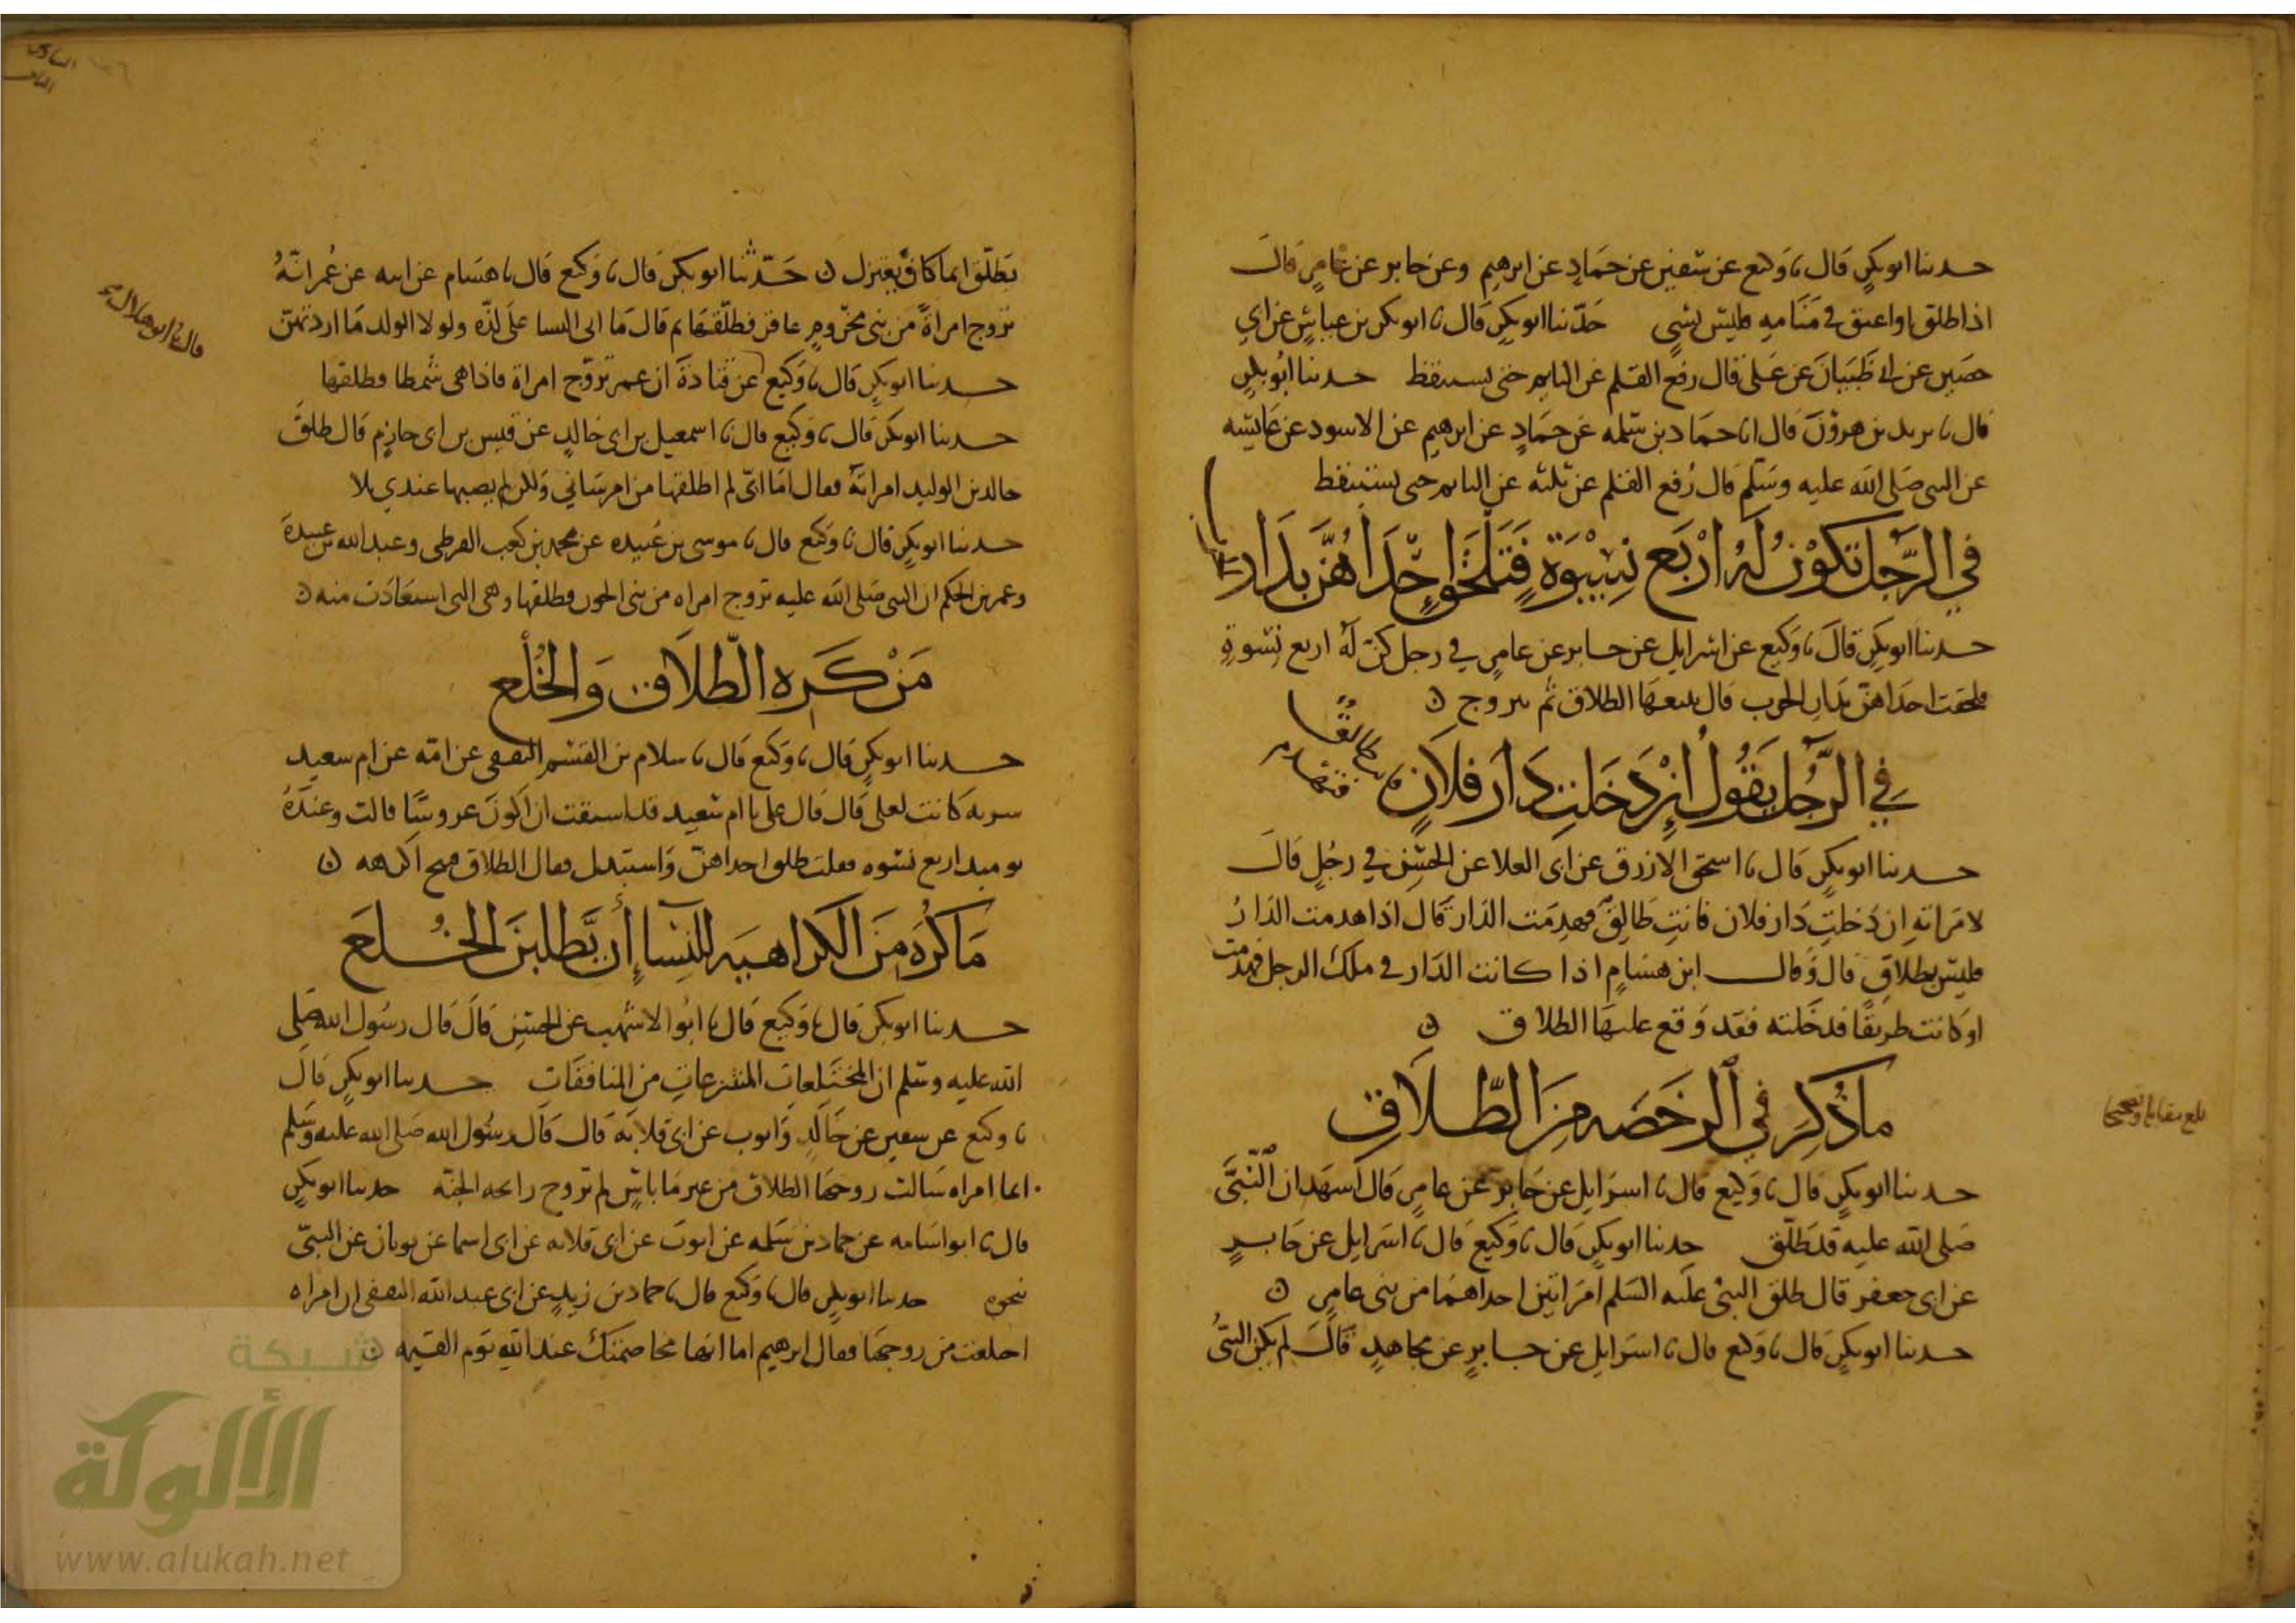 حدثنا ابو بكر قال نا وكيع عن سفين عن حماد عن ابرهيم وعن جابر عن عامر قال
اذا طلق او اعتق في منامه فليس بشي حدثنا ابو بكر قال نا ابو بكر بن عياش عن ابي
حصين عن ابي ظبيان عن علي قال رفع القلم عن النايم حتى يستيقظ حدثنا ابو بكر
قال نا يزيد بن هرون قال انا حماد بن سلمه عن حماد عن ابرهيم عن الاسود عن عائشه
عن النبي صلى الله عليه وسلم قال رفع القلم عن ثلثه عن النايم حتى يستيقظ
في الرجل تكون له اربع نسوة فتلحق احداهن بدار
حدثنا ابو بكر قال نا وكيع عن اسرايل عن جابر عن عامر في رجل كن له اربع نسوة
فلحقت احداهن بدار الحرب قال يتبعها الطلاق ثم يتزوج
في الرجل يقول ان دخلت دار فلان
حدثنا ابو بكر قال نا اسحق الازرق عن ابي العلا عن الحسن في رجل قال
لامراته ان دخلت دار فلان فانت طالق فهدمت الدار قال اذا هدمت الدار
فليس بطلاق قال وقال ابن هشام اذا كانت الدار في ملك الرجل فهدمت
او كانت طريقا فدخلته فقد وقع عليها الطلاق
ما ذكر في الرخصه من الطلاق
بلغ مقابلة
حدثنا ابو بكر قال نا وكيع قال نا اسرايل عن جابر عن عامر قال اشهد ان النبي
صلى الله عليه قد طلق حدثنا ابو بكر قال نا وكيع قال نا اسرايل عن جابر
عن ابي جعفر قال طلق النبي عليه السلم امراتين احداهما من بني عامر
حدثنا ابو بكر قال نا وكيع قال نا اسرايل عن جابر عن مجاهد قال لم يكن النبي
يطلق انما كان يعتزل حدثنا ابو بكر قال نا وكيع قال نا هشام عن ابيه عن عمر انه
تزوج امراة من بني مخزوم عاقر فطلقها ثم قال ما اتي النسا على لذه ولولا الولد ما اردتهن
قال نا ابو هلال
حدثنا ابو بكر قال نا وكيع عن قتادة ان عمر تزوج امراة فاذا هي شمطا فطلقها
حدثنا ابو بكر قال نا وكيع قال نا اسمعيل بن ابي خالد عن قيس بن ابي حازم قال طلق
خالد بن الوليد امراته فقال اما اني لم اطلقها من امر ساني ولكن لم يصبها عندي بلا
حدثنا ابو بكر قال نا وكيع قال نا موسى بن عبيده عن محمد بن كعب القرظي وعبد الله بن عبيدة
وعمر بن الحكم ان النبي صلى الله عليه تزوج امراه من بني الجون فطلقها وهي التي استعاذت منه
من كره الطلاق والخلع
حدثنا ابو بكر قال نا وكيع قال نا سلام بن القسم الثقفي عن امه عن ام سعيد
سريه كانت لعلي قال قال علي يا ام سعيد قد اشتقت ان اكون عروسا قالت وعنده
يوميذ اربع نسوه فقلت طلق احداهن واستبدل فقال الطلاق قبيح اكرهه
ما كره من الكراهيه للنسا ان يطلبن الخلع
حدثنا ابو بكر قال نا وكيع قال نا ابو الاشهب عن الحسن قال قال رسول الله صلى
الله عليه وسلم ان المختلعات المنتزعات من المنافقات حدثنا ابو بكر قال
نا وكيع عن سفين عن خالد وايوب عن ابي قلابه قال قال رسول الله صلى الله عليه وسلم
ايما امراه سالت زوجها الطلاق من غير ما باس لم تروح رائحه الجنه حدثنا ابو بكر
قال نا ابو اسامه عن حماد بن سلمه عن ايوب عن ابي قلابه عن ابي اسما عن ثوبان عن النبي
نحوه حدثنا ابو بكر قال نا وكيع قال نا حماد بن زيد عن ابي عبد الله الثقفي ان امراه
اختلعت من زوجها فقال ابرهيم اما انها مخاصمتك عند الله يوم القيمه
شبكة
الألوكة
www.alukah.net